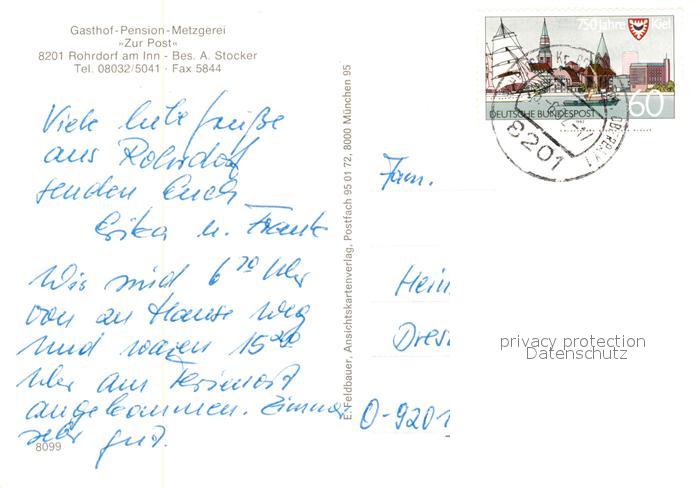 Gasthof-Pension-Metzgerei
»Zur Post«
8201 Rohrdorf am Inn - Bes. A. Stocker
Tel. 08032/5041 · Fax 5844
Viele liebe Grüße
aus Rohrdorf
senden Euch
Erika u. Frank
Wir sind 6 30 Uhr
von zu Hause weg
und waren 15 00
Uhr am Ferienort
angekommen. Zimmer
sehr gut.
8099
E. Feldbauer, Ansichtskartenverlag, Postfach 95 01 72, 8000 München 95
750 Jahre Kiel
60
DEUTSCHE BUNDESPOST
8201
Fam.
Hein
Dres
O-9201
privacy protection
Datenschutz